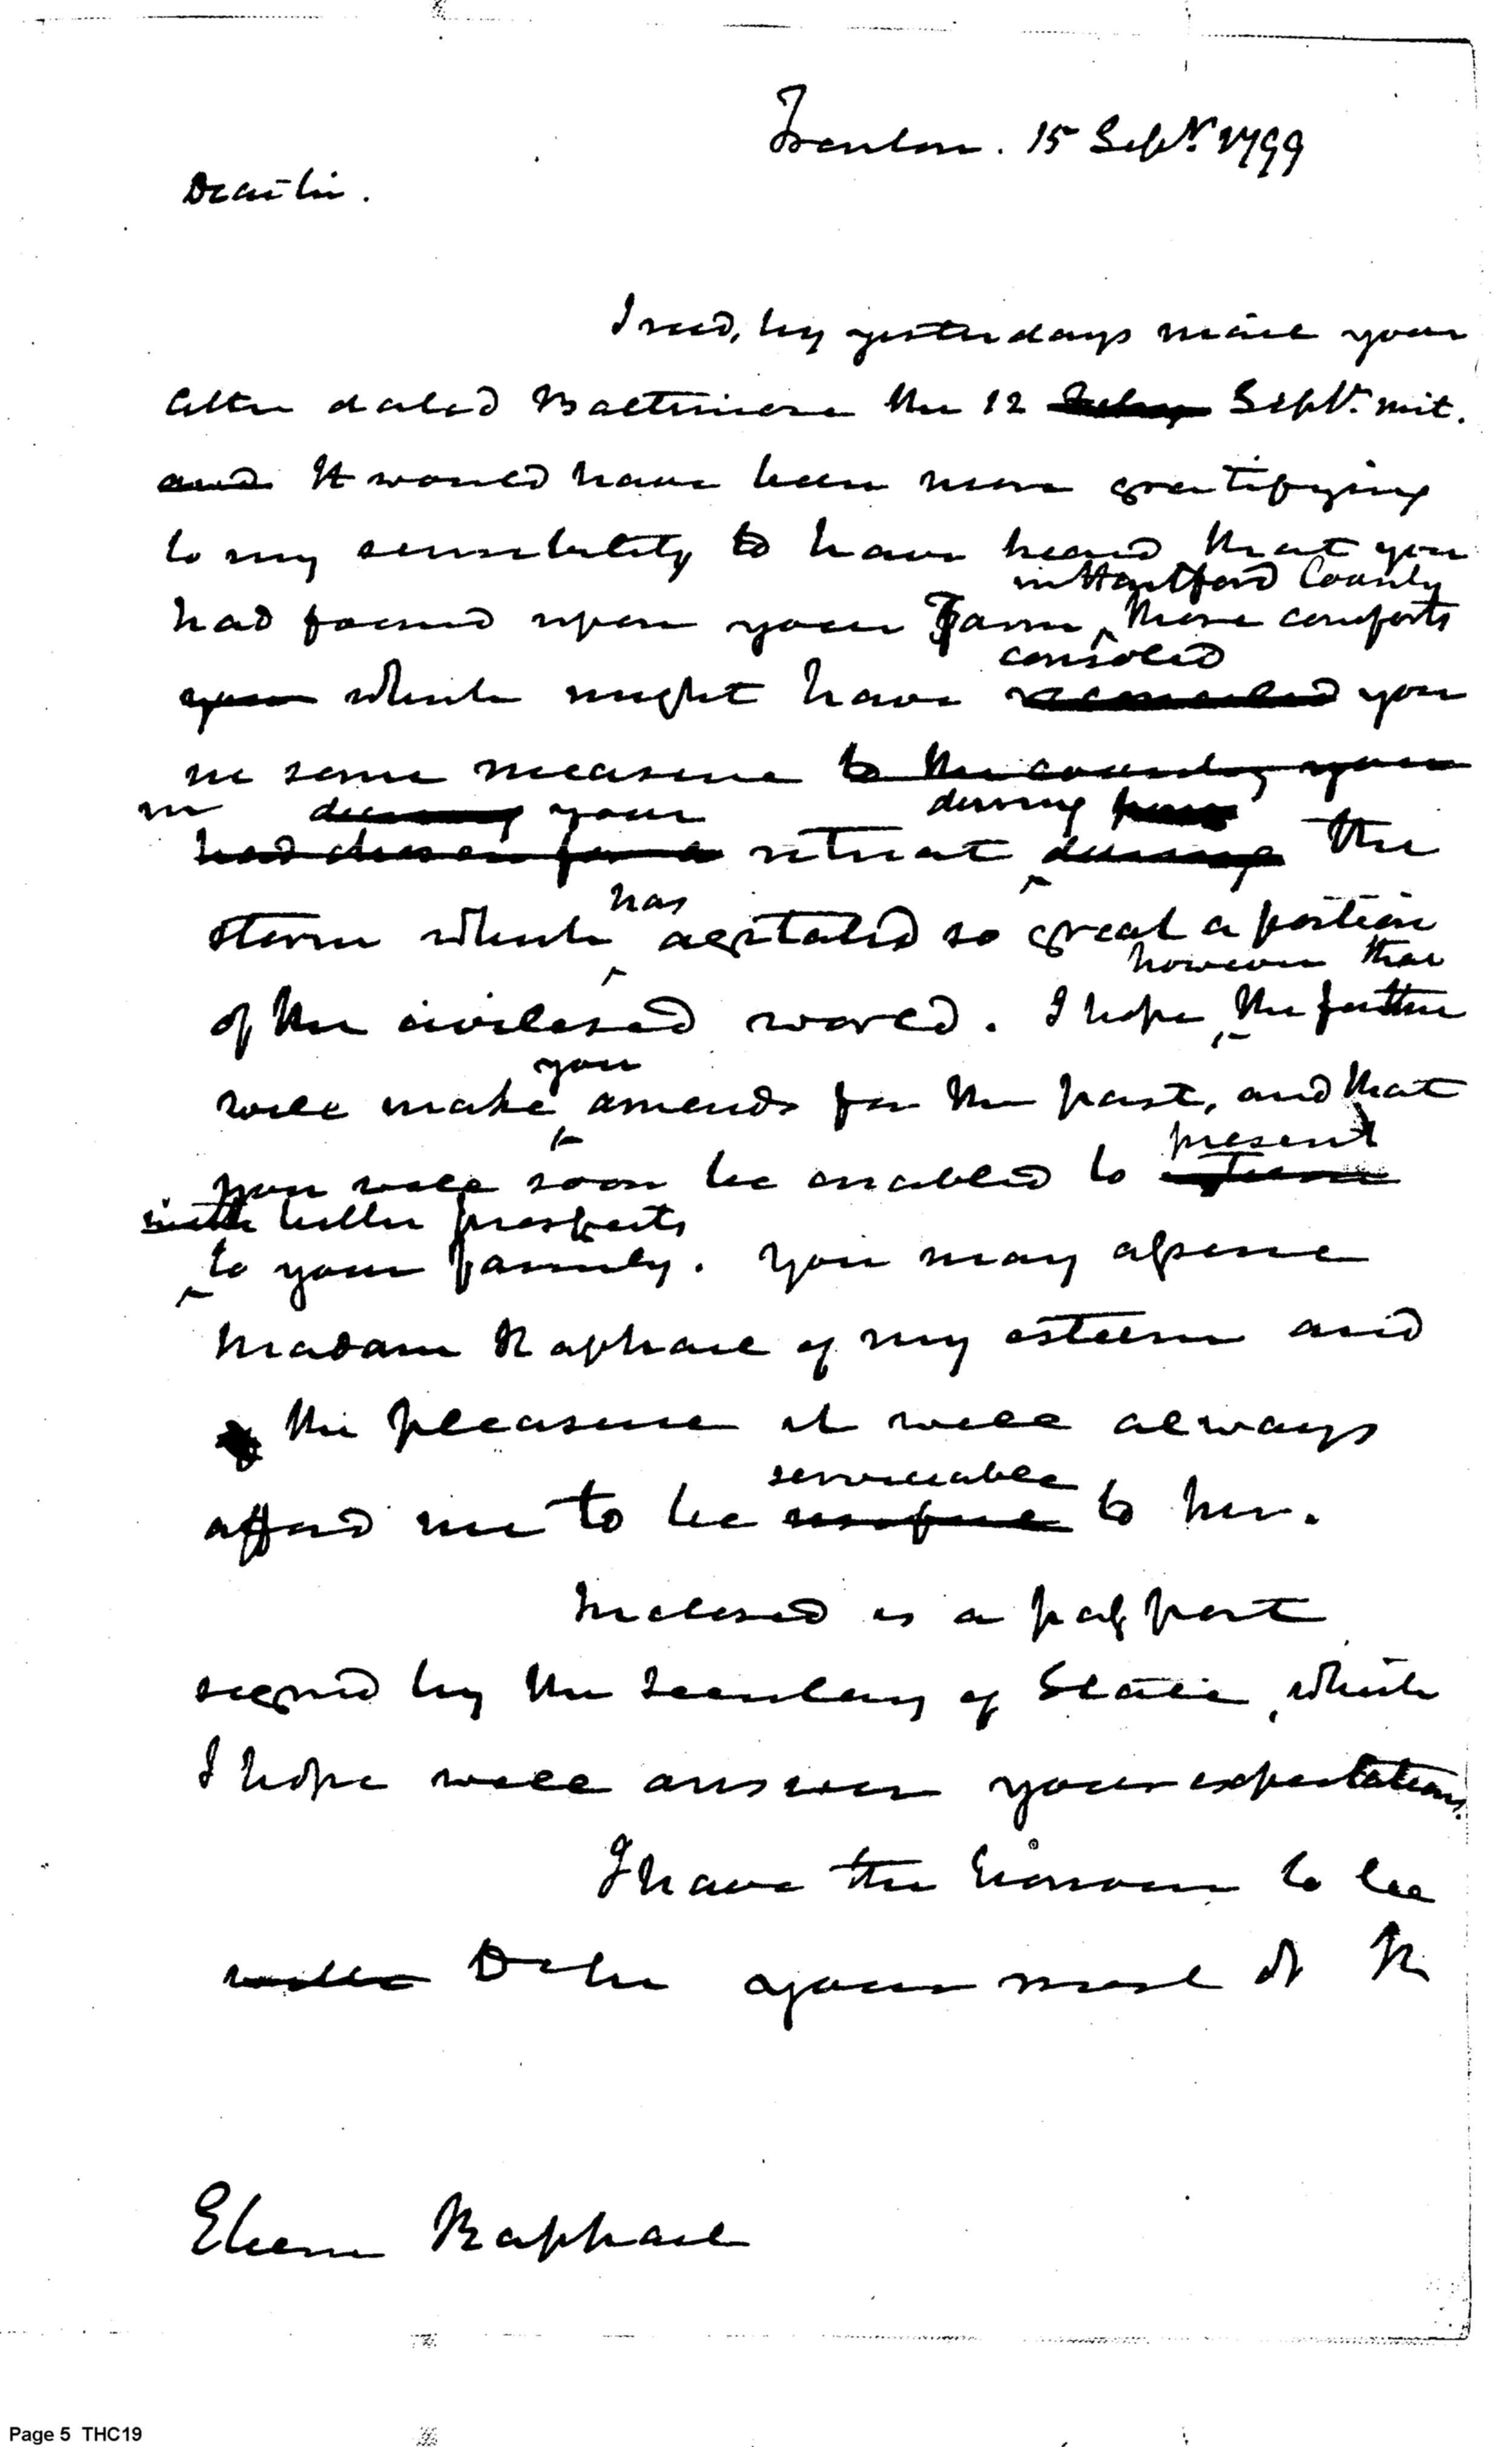 Trenton. 15 Sepr. 1799
Dear Sir.
I recd, by yesterdays mail your
letter dated Baltimore the 12 July Sepbr. inst.
and It would have been more gratifying
to my sensibility to have heard that you
in Hartford County
had found upon your Farm those comforts
consoled
your which might have reconciled you
in some measure to the country you
in during your during
had chosen for a retreat during the
has
storm which agitated so great a portion
however that
of the civilesed world. I hope the future
you
will make amends for the past, and that
present
you will soon be enabled to
with better prospects
to your family. You may assure
Madam Raphael of my esteem and
the pleasure it will always
serviceable
afford me to be useful to her.
Inclosed is a passport
signed by the Secretary of State, which
I hope will answer your expectations.
I have the honour to be
with D Sir your most Ob
Raphael
Page 5 THC19